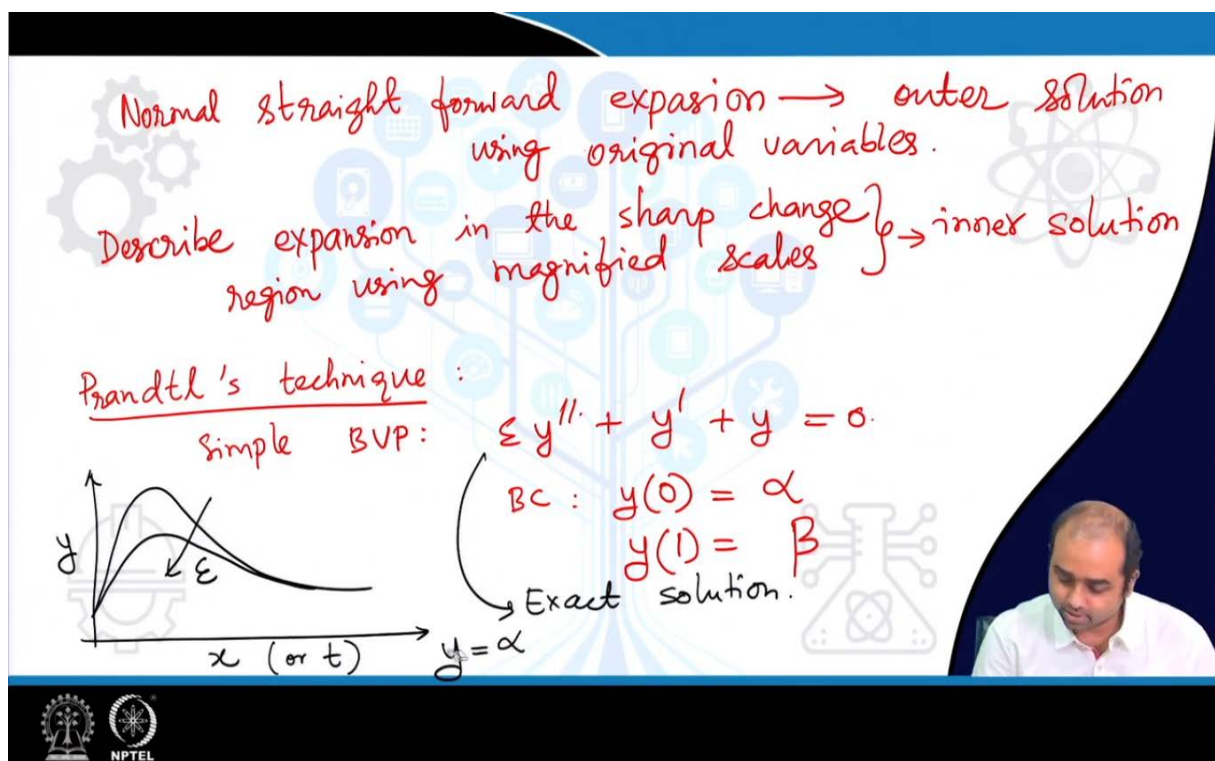 Normal straight forward expasion → outer solution
using original variables.
Describe expansion in the sharp change } → inner solution
region using magnified scales
Prandtl's technique :
Simple BVP: εy'' + y' + y = 0.
BC : y(0) = α
y(1) = β
Exact solution.
y
ε
x (or t)
y = α
NPTEL